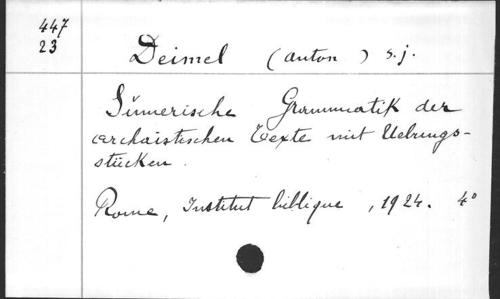 447
23
Deimel (Anton) s.j.
Sümerische Grammatik der
archaistischen Texte mit Uebungs-
stücken.
Rome, Institut biblique, 1924. 4°